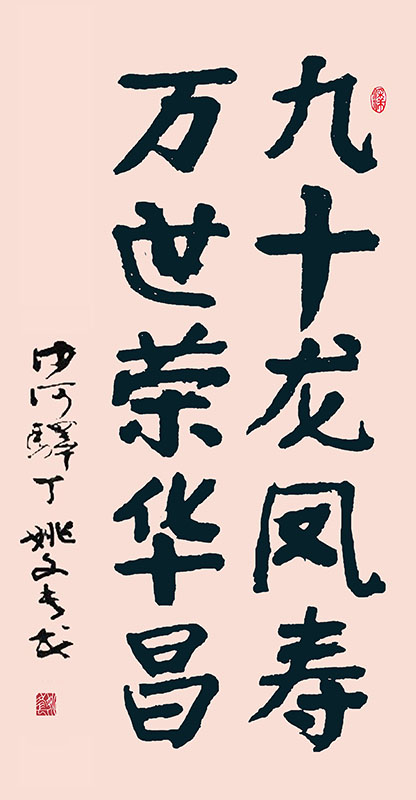 九十龙凤寿
万世荣华昌
沙河驿丁姚文长书